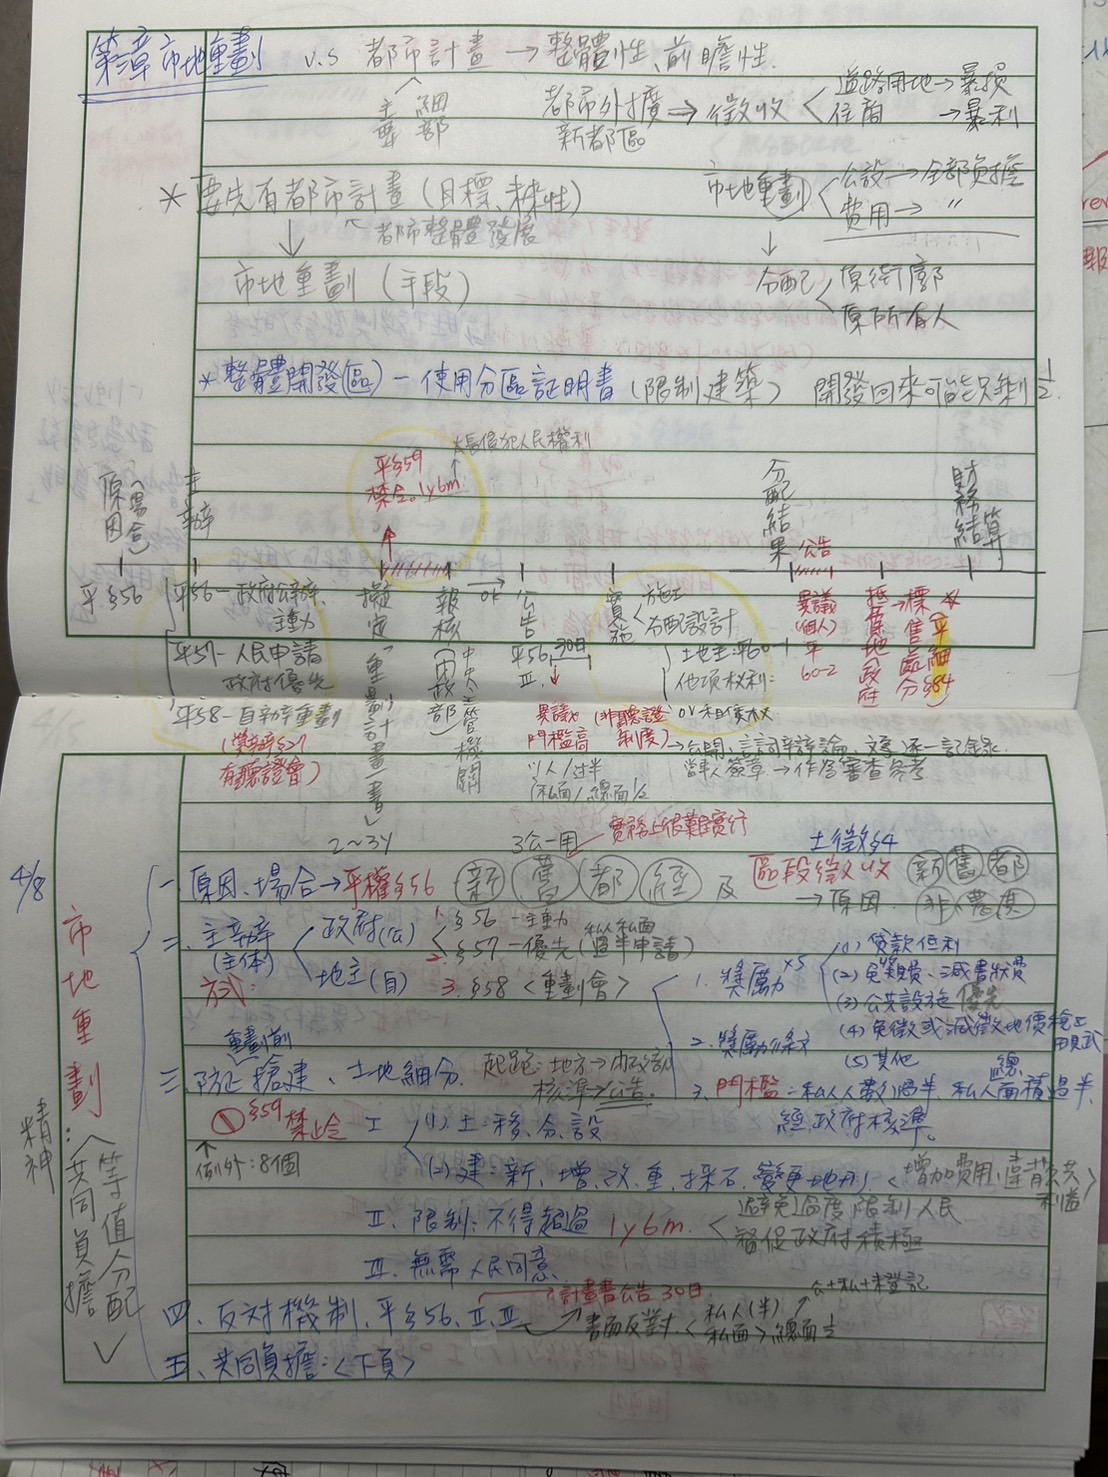 第三章 市地重劃 v.s 都市計畫 → 整體性、前瞻性.
主要 細部
都市外擴 新都區 ⇒ 徵收 < 道路用地 → 暴損
住商 → 暴利
* 要先有都市計畫 (目標、未來性)
市地重劃 < 公設 → 全部負擔
費用 → 〃
↖ 都市整體發展
↓
市地重劃 (手段)
↓
分配 < 原街廓
原所有人
* 整體開發(區) - 使用分區証明書 (限制建築) 開發回來可能只剩 1/2.
平§59
禁令。1y6m.
↑
侵犯人民權利
原因(場合)
主辦
分配結果
公告
財務結算
平§56
平56-政府公辦、主動
平57-人民申請 政府優先
平58-自辦重劃
(獎辦§27 有聽證會)
擬定「重劃計畫書」
報核(內政部)
中央主管機關
OK
公告
平56 Ⅱ.
30日
異議 門檻高
(非聽證制度)
以人/過半
私面/總面 1/2
實施 < 施工
分配設計
土地主:平60-1
他項权利:
or 租賃权
異議(個人)
平60-2
抵費地(政府)
→ 標售
(平細§84)
→ 公開、言詞辯論、文書逐一記錄.
當事人簽章 → 作為審查參考
2~3y
3公一用
實務上很難實行
土徵§4
4/8
市地重劃
精神:<共同負擔 等值分配>
一、原因、場合 → 平權§56 新 舊 都 經 及 區段徵收 新 舊 都
→ 原因. 非 農 廣
二、主辦 < 政府(公) < 1. §56 - 主動
(主体) 2. §57 - 優先 (私人私面過半申請)
方式: 地主(自) 3. §58 <重劃會>
1. 獎勵 ×5 (1) 貸款低利
(2) 免規費、減書狀費
(3) 公共設施優先
2. 獎勵條文 (4) 免徵或減徵地價稅
(5) 其他
3. 門檻:私人人數過半、私人面積過半、
經政府核準。
重劃前
三、防止搶建、土地細分. 起跑:地方→內政部
核準→公告.
§59 禁止令
↑ 例外:8個
Ⅰ < (1) 土:移、分、設
(2) 建:新、增、改、重、採石、變更地形 <增加費用、違背公共利益>
Ⅱ. 限制:不得超過 1y6m. < 避免過度限制人民
督促政府積極
Ⅲ. 無需人民同意
四、反対機制. 平§56、Ⅱ、Ⅲ → 計畫書公告 30日
書面反對. < 私人(半)
私面>總面 1/2
公+私+未登記
五、共同負擔:<下頁>